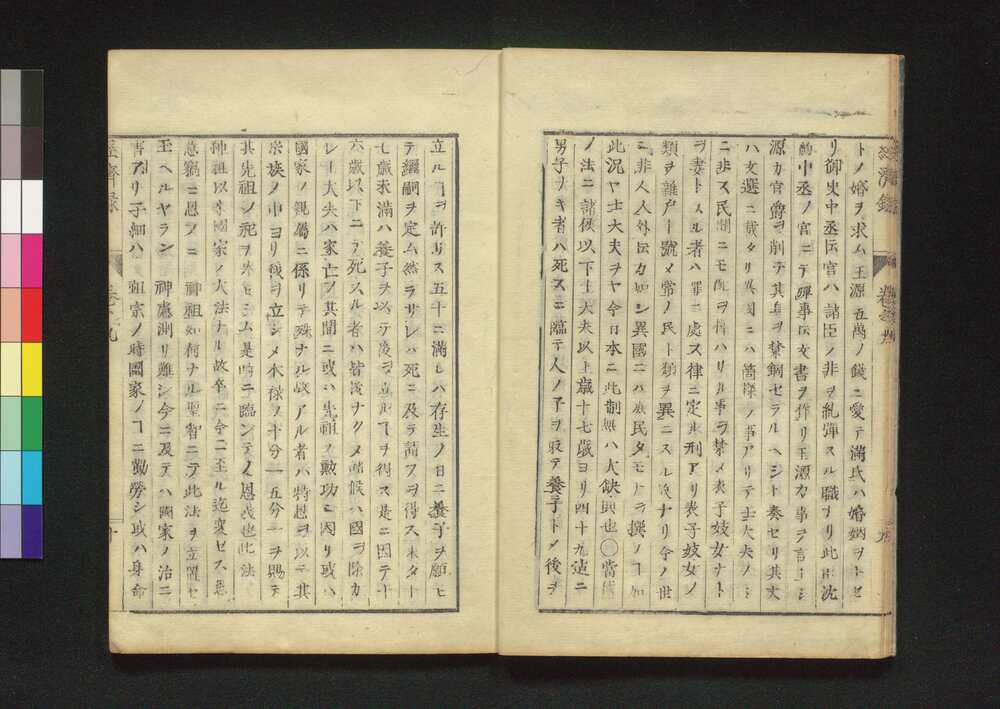 トノ婚ヲ求ム王源五萬ノ錢ニ愛テ滿氏ハ婚姻ヲトセ
リ御史中丞ト云官ハ諸臣ノ非ヲ糺彈スル職ナリ此時沈
約中丞ノ官ニテ彈事ト云文書ヲ作リ王源カ事ヲ言上シ
源カ官爵ヲ削テ其身ヲ禁錮セラルヘシト奏セリ其文
ハ文選ニ載タリ異國ニハ箇樣ノ事アリテ士大夫ノミ
ニ非ス民間ニモ
ヲ妻トスル者ハ罪ニ處ス律ニ定ル刑アリ表子妓女ノ
類ヲ雜戸ト號メ常ノ民ト類ヲ異ニスル故ナリ今ノ世
ニ非人ト云カ如シ異國ニハ庶民タモ人ヲ撰フヿ如
此況ヤ士大夫ヲヤ今日本ニ此制無ハ大缺典也〇當代
ノ法ニ諸侯以下士大夫以上歳十七歳ヨリ四十九迄ニ
男子ナキ者ハ死スニ臨テ人ノ子ヲ取テ養子トメ後ヲ
立ルヿヲ許サス五十ニ滿レハ存生ノ日ニ養子ヲ願ヒ
テ繼嗣ヲ定ム然ラサレハ死ニ及テ請フヲ得ス未タ十
七歳未滿ハ養子ヲ以テ後ヲ立ルヿヲ得ス是ニ因テ十
六歳以下ニテ死スル者ハ皆後ナクメ諸候ハ國ヲ除カ
レ士大夫ハ家亡フ其間ニ或ハ先祖ノ勲功ニ因リ或ハ
國家ノ親屬ニ係リテ殊ナル故アル者ハ特恩ヲ以テ其
宗族ノ中ヨリ後ヲ立シメ本祿ノ半分一五分一ヲ賜テ
其先祖ノ祀ヲ
神祖以來國家ノ大法ナル故卒ニ今ニ至ル迄変セス愚
意竊ニ思フニ　神祖如何ナル聖智ニテ此法ヲ立置セ
玉ヘルヤラン　神慮測リ難シ今ニ及テハ國家ノ治ニ
害アリ子細ハ　祖宗ノ時國家ノヿニ勤勞シ或ハ身命